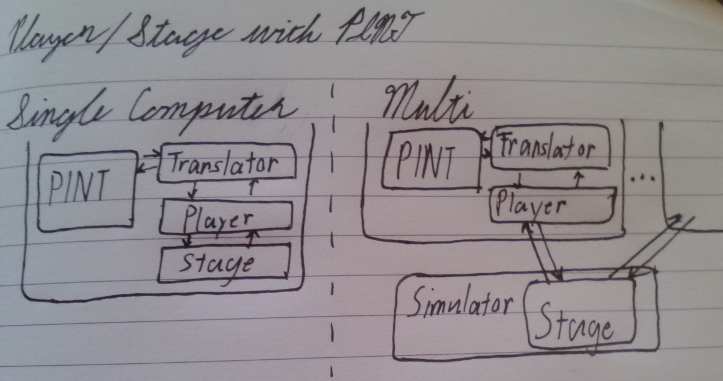 Player/Stage with PINT
Single Computer
PINT
Translator
Player
Stage
Multi
PINT
Translator
Player
...
Simulator
Stage